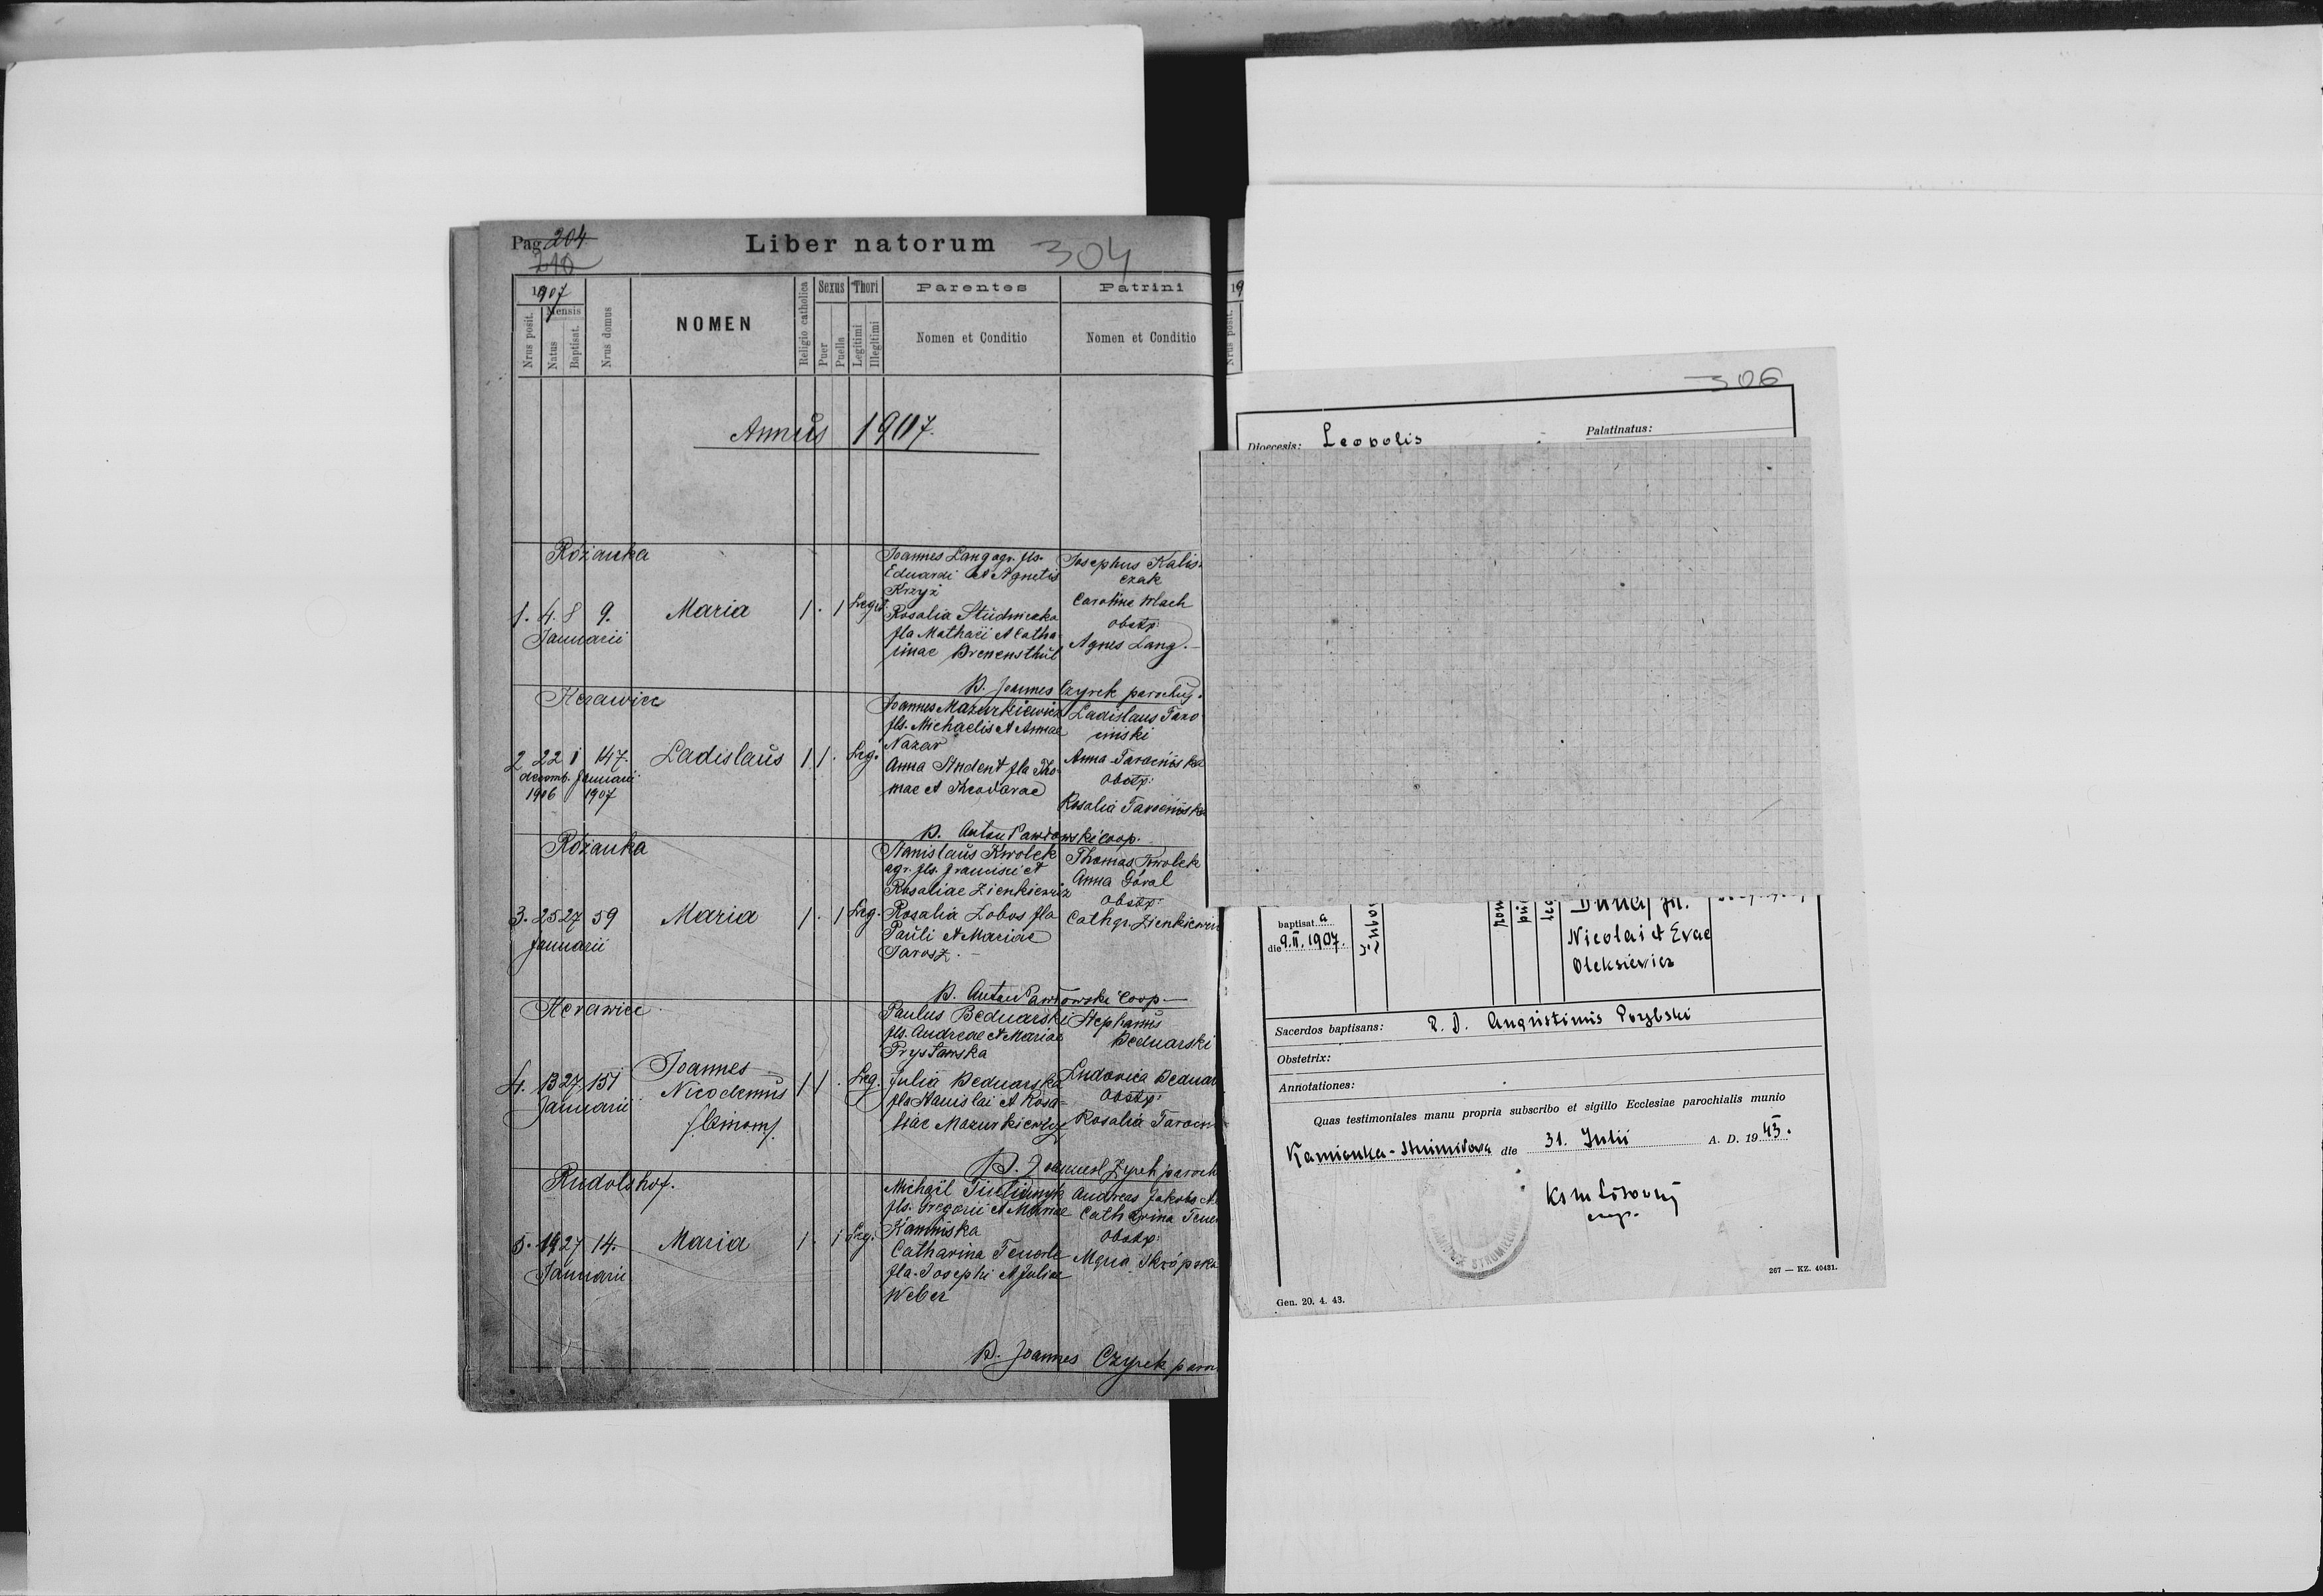 Pag. 204
210
Liber natorum
304
1907
Mensis
Nrus posit.
Natus
Baptisat.
Nrus domus
NOMEN
Religio catholica
Sexus
Puer
Puella
Thori
Legitimi
Illegitimi
Parentes
Nomen et Conditio
Patrini
Nomen et Conditio
Annus 1907.
Różanka
1. 4. 8 9.
Januarii
Maria
1 . 1 Legit.
Joannes Lang agr. fls.
Eduardi et Agnetis
Krzyż
Rosalia
fla Mathaei et Catha-
rinae
Josephus Kalis-
czak
Carolina Wlach
obstp:
Agnes Lang.
P. Joannes Czyrek parochus.
2 22 1 147.
decemb. Januarii
1906 1907
Ladislaus
1 1 . Leg.
Joannes Mazurkiewicz
fls. Michaelis et Annae
Nazar
Anna Student fla Tho-
mae et Theodorae
Ladislaus Taro
ciński
Anna Tarocińska
obstp:
Rosalia Tarocińska
P. Anton Pawłowski coop.
Różanka
3. 25 27 59
Januarii
Maria
1 . 1 Leg.
Stanislaus Kwolek
agr. fls. Francisci et
Rosaliae Zienkiewicz
Rosalia Lobos fla
Pauli et Mariae
Jarosz.
Thomas Kwolek
Anna Góral
obstp:
Cath. gr. Zienkiewicz
P. Anton Pawłowski Coop
4. 13 27 151
Januarii
Joannes
Nicodemus
1 1 . Leg.
Paulus Bednarski
fls. Andreae et Mariae
Prystawska
Julia Bednarska
fla Stanislai et Rosa-
liae Mazurkiewicz
Stephanus
Bednarski
Ludovica Bednar
obstp:
Rosalia Tarocin
Rudolshof.
5. 14 27 14.
Januarii
Maria
1 . 1 Leg.
Michaël
fls. Gregorii et Mariae
Kaminska
Catharina Feuerle
fla. Josephi et Juliae
Weber
Andreas
Catharina Feuer
obstp:
P. Joannes Czyrek paroc
19
Nrus posit.
306
Dioecesis: Leopolis
Palatinatus:
baptisat a
die 9.II.1907.
Nicolai et Evae
Oleksiewicz
Sacerdos baptisans: R. D. Augustinus Porębski
Obstetrix:
Annotationes:
Quas testimoniales manu propria subscribo et sigillo Ecclesiae parochialis munio
Kamionka-Strumiłowa die 31. Julii A. D. 1943.
267 — KZ. 40431.
Gen. 20. 4. 43.